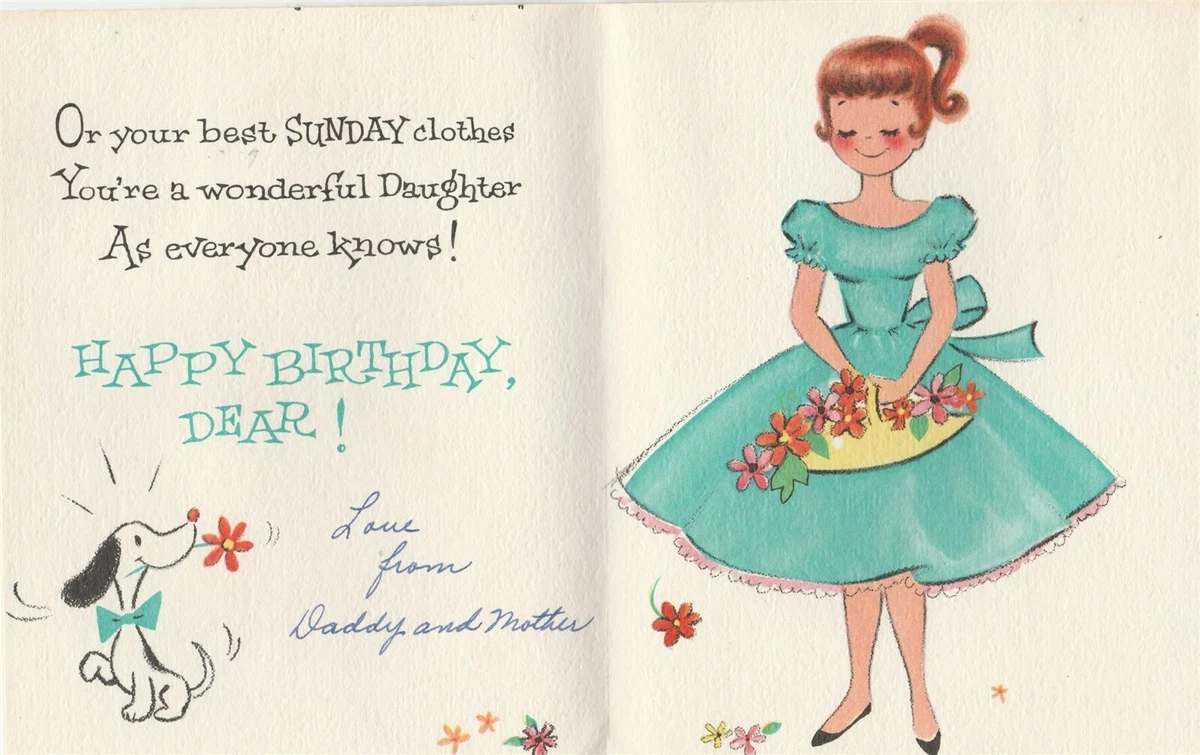 Or your best SUNDAY clothes
You're a wonderful Daughter
As everyone knows!
HAPPY BIRTHDAY,
DEAR!
Love
from
Daddy and Mother